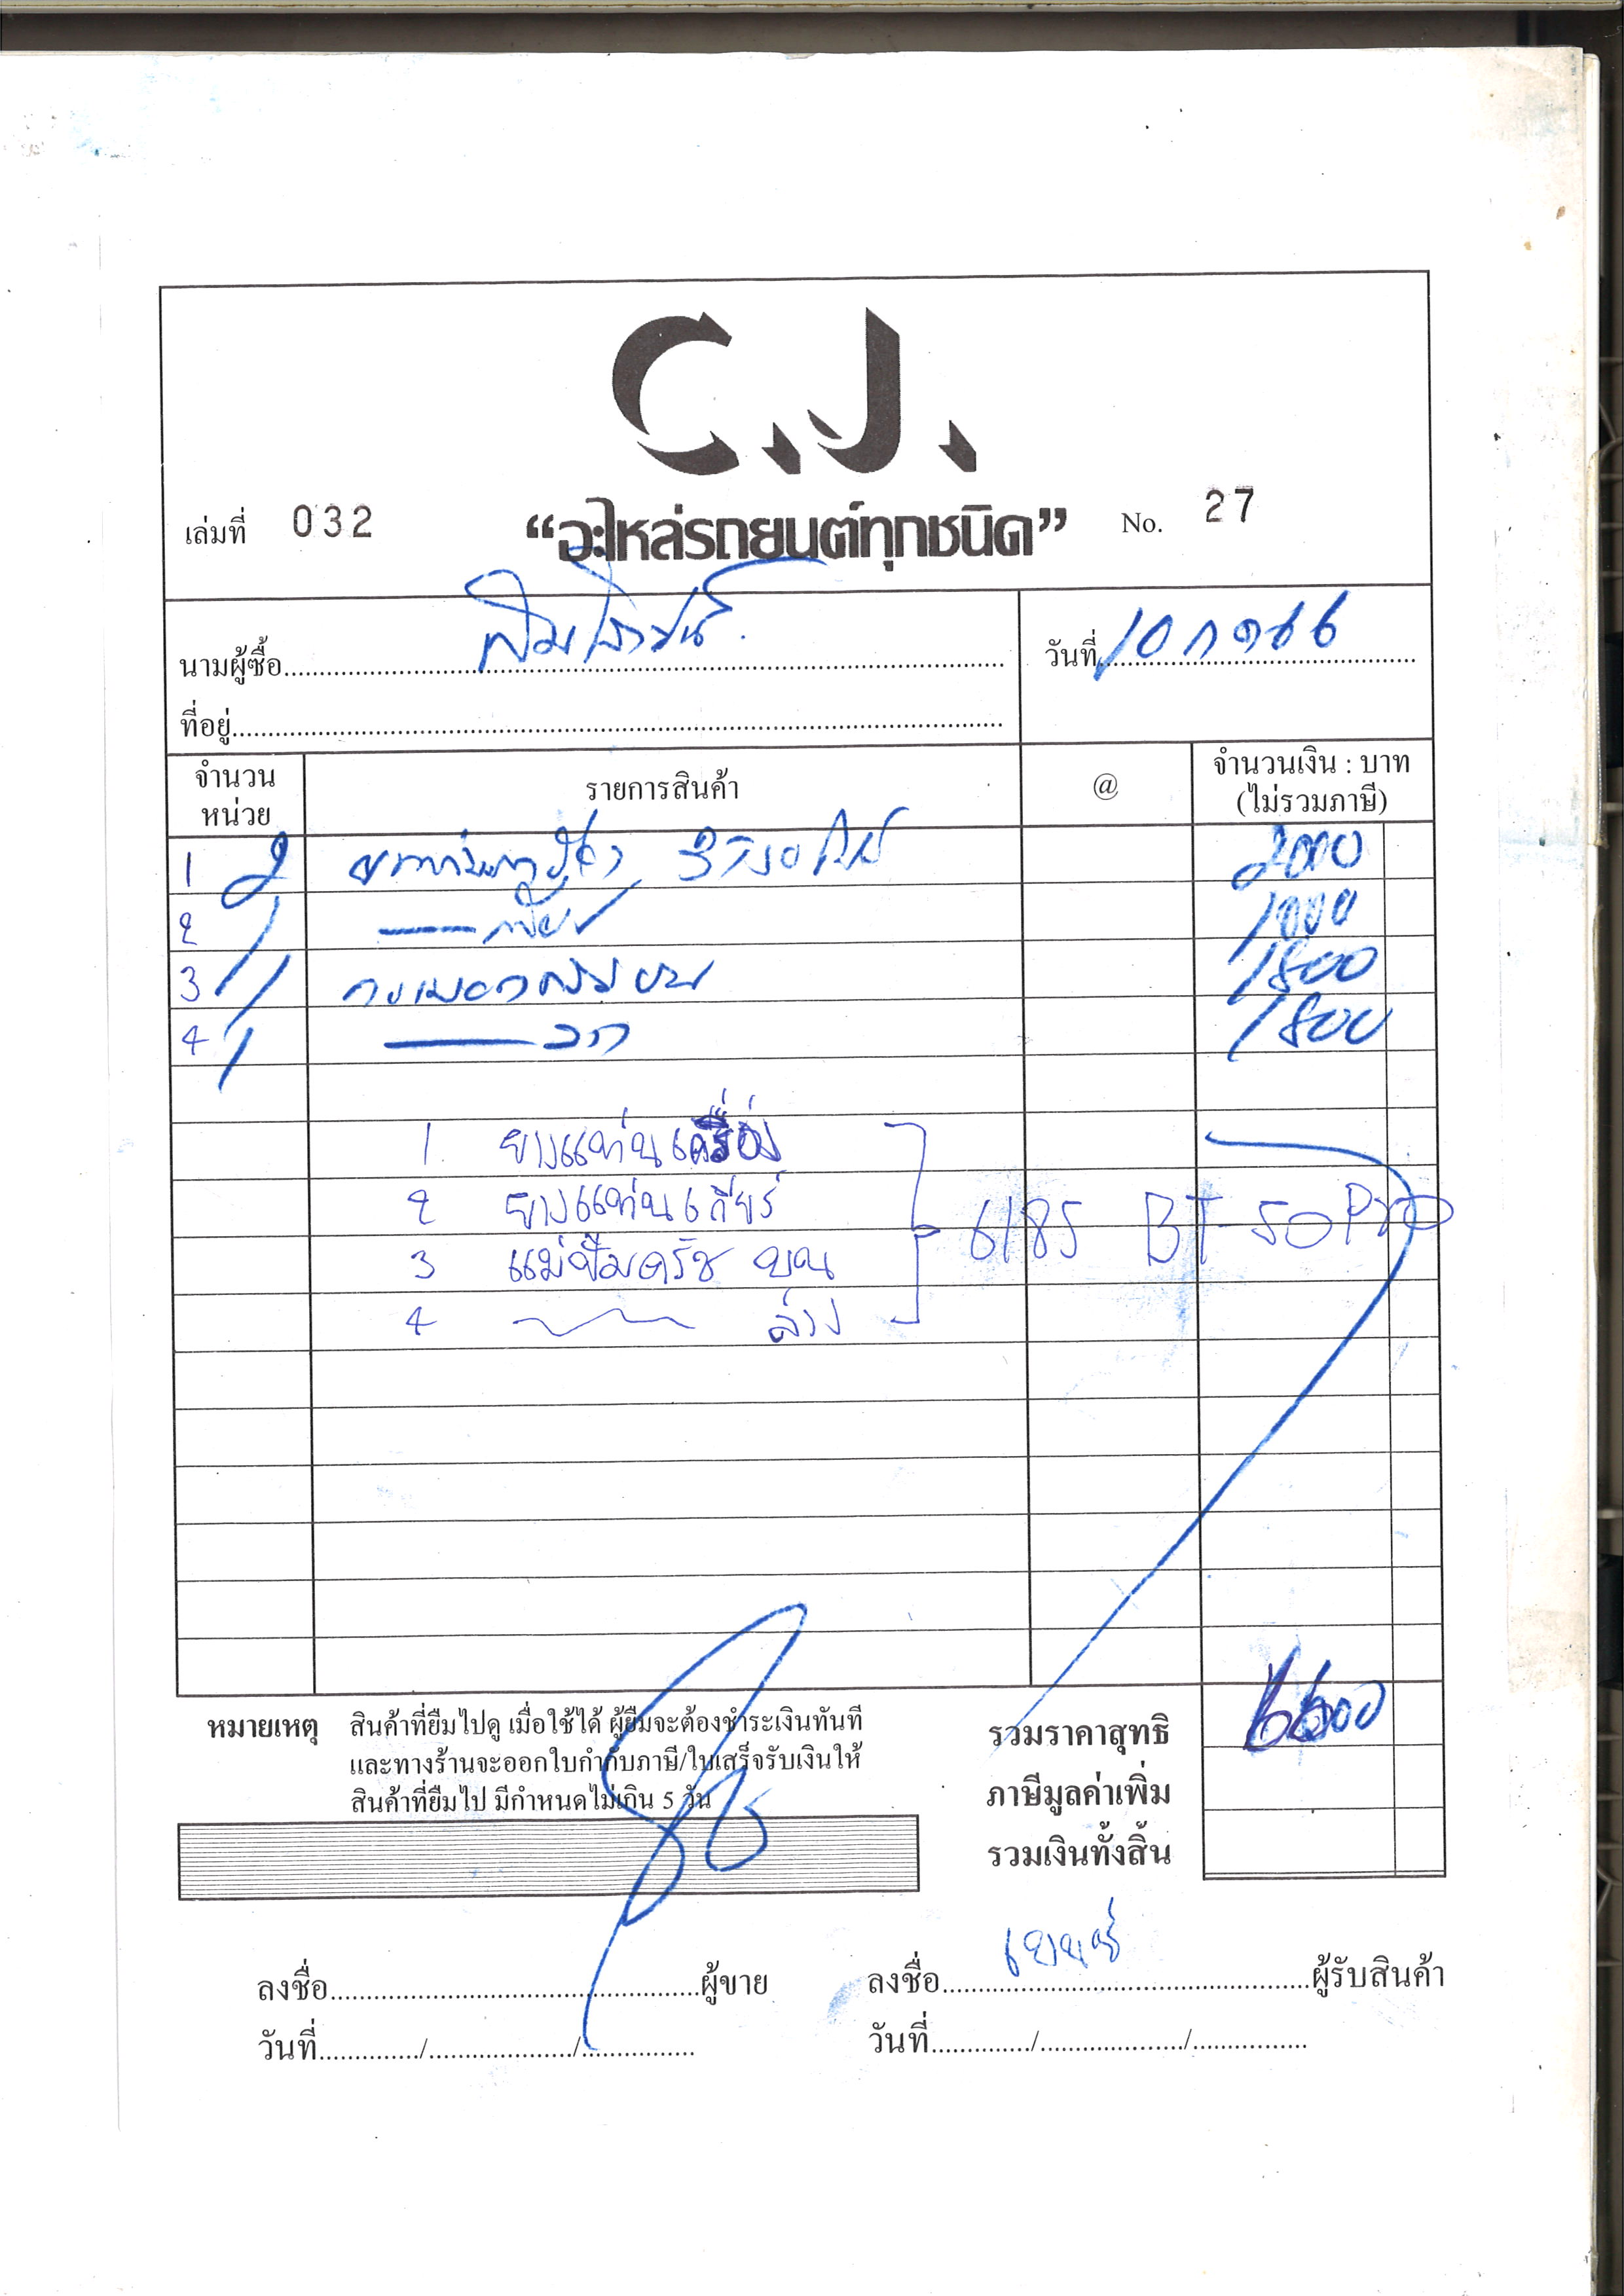 C.J.
เล่มที่ 032 “อะไหล่รถยนต์ทุกชนิด” No. 27
นามผู้ซื้อ
วันที่ 10
ที่อยู่
จำนวน หน่วย รายการสินค้า @ จำนวนเงิน : บาท (ไม่รวมภาษี)
1 2 2000
2 1 1000
3 1 1800
4 1 1800
1 ยางแท่นเครื่อง
2 ยางแท่นเกียร์ 6185 BT-50 Pro
3 แม่ปั๊มครัช บน
4 ล่าง
หมายเหตุ สินค้าที่ยืมไปดู เมื่อใช้ได้ ผู้ยืมจะต้องชำระเงินทันที
และทางร้านจะออกใบกำกับภาษี/ใบเสร็จรับเงินให้
สินค้าที่ยืมไป มีกำหนดไม่เกิน 5 วัน
รวมราคาสุทธิ 6600
ภาษีมูลค่าเพิ่ม
รวมเงินทั้งสิ้น
ลงชื่อ ผู้ขาย ลงชื่อ ผู้รับสินค้า
วันที่ / / วันที่ / /